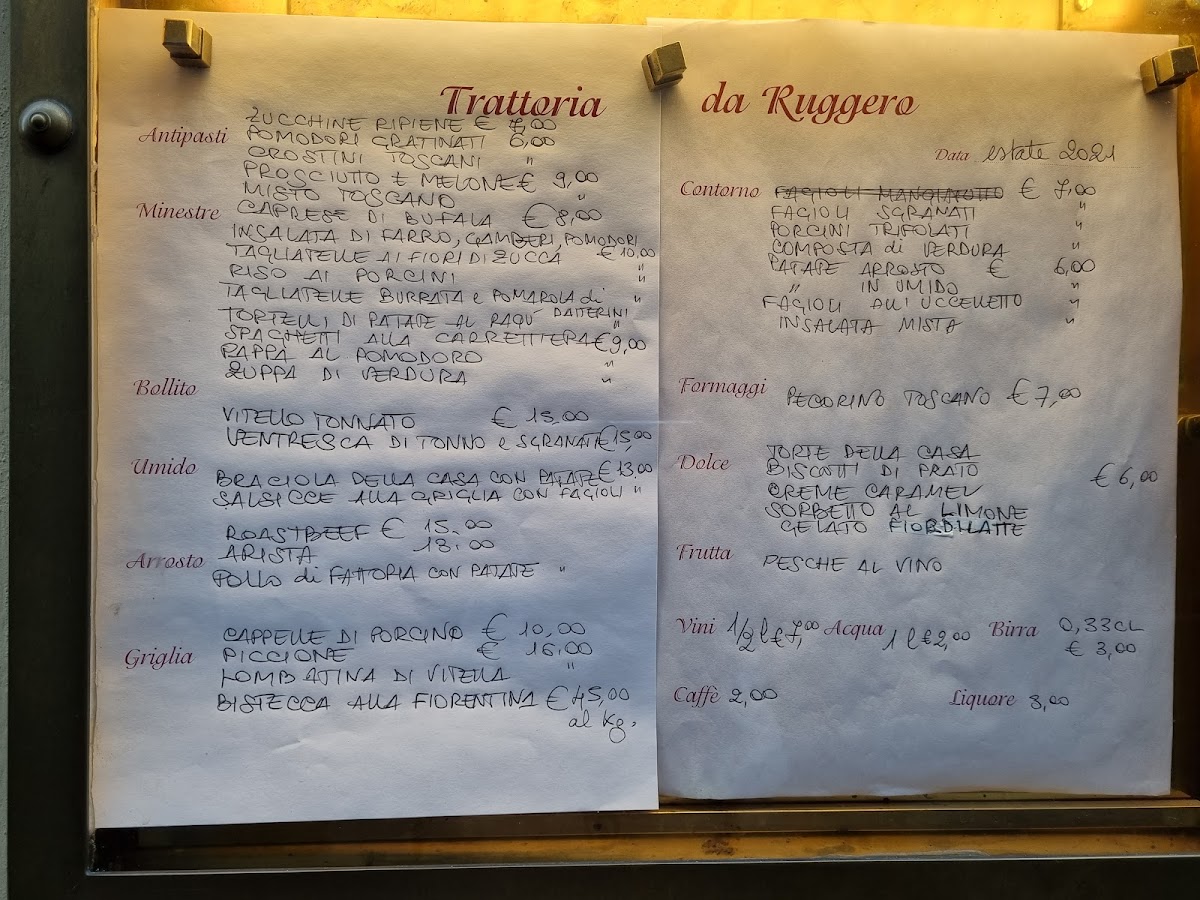 Trattoria da Ruggero
Antipasti
ZUCCHINE RIPIENE € 7,00
POMODORI GRATINATI 6,00
CROSTINI TOSCANI "
PROSCIUTTO E MELONE € 9,00
MISTO TOSCANO "
Minestre
CAPRESE DI BUFALA € 8,00
INSALATA DI FARRO, GAMBERI, POMODORI
TAGLIATELLE AI FIORI DI ZUCCA € 10,00
RISO AI PORCINI "
TAGLIATELLE BURRATA e POMAROLA di "
DATTERINI
TORTELLI DI PATATE AL RAGU' "
SPAGHETTI ALLA CARRETTIERA € 9,00
PAPPA AL POMODORO "
ZUPPA DI VERDURA "
Bollito
VITELLO TONNATO € 15,00
VENTRESCA DI TONNO e SGRANATI € 15,00
Umido
BRACIOLA DELLA CASA CON PATATE € 13,00
SALSICCE ALLA GRIGLIA CON FAGIOLI "
ROASTBEEF € 15.00
ARISTA 13.00
Arrosto
POLLO di FATTORIA CON PATATE "
CAPPELLE DI PORCINO € 10,00
Griglia
PICCIONE € 16,00
LOMBATINA DI VITELLA "
BISTECCA ALLA FIORENTINA € 45,00
al Kg.
Data estate 2021
Contorno
FAGIOLI € 7,00
FAGIOLI SGRANATI "
PORCINI TRIFOLATI "
COMPOSTA di VERDURA "
PATATE ARROSTO € 6,00
" IN UMIDO "
FAGIOLI ALL'UCCELLETTO "
INSALATA MISTA "
Formaggi
PECORINO TOSCANO € 7,00
Dolce
TORTE DELLA CASA
BISCOTTI DI PRATO
€ 6,00
CREME CARAMEL
SORBETTO AL LIMONE
GELATO FIORDILATTE
Frutta
PESCHE AL VINO
Vini 1/2 l € 7,00 Acqua 1 l € 2,00 Birra 0,33CL
€ 3,00
Caffè 2,00 Liquore 3,00